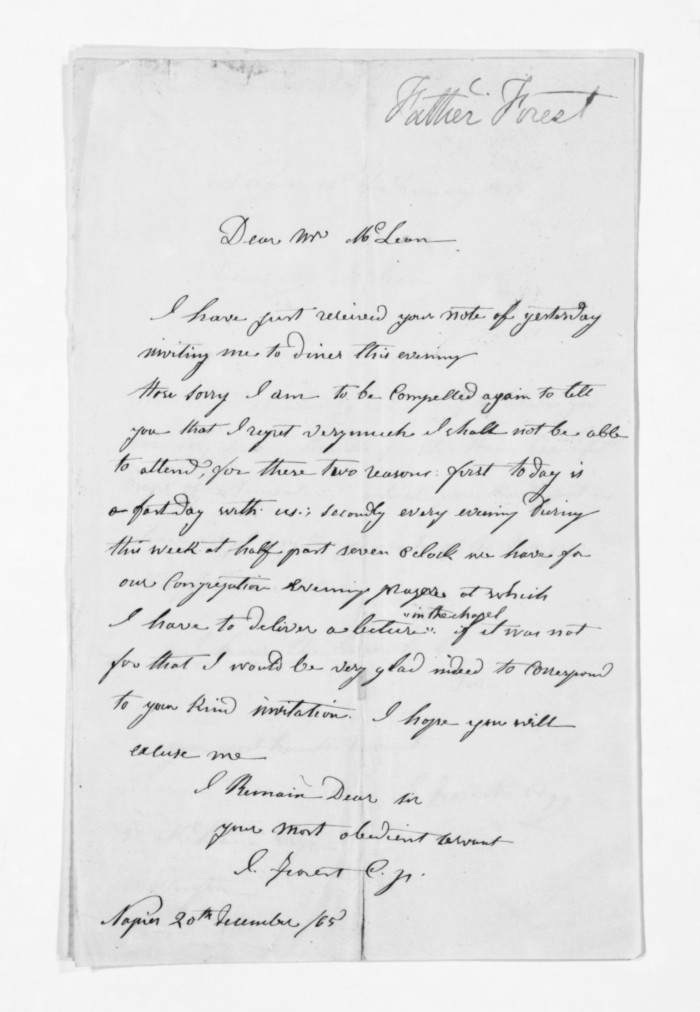 Father C. Forest
Dear Mr McLean
I have just received your note of yesterday
inviting me to diner this evening
How sorry I am to be Compelled again to tell
you that I regret very much I shall not be able
to attend, for these two reasons: first today is
a fast day with us.; secondly every evening During
this week at half past seven o'clock we have for
our Congregation Evening prayers at which
I have to deliver a lecture "in the chapel". if it was not
for that I would be very glad indeed to correspond
to your kind invitation. I hope you will
excuse me
I Remain Dear sir
your most obedient servant
J. Forest C. p.
Napier 20th December /65